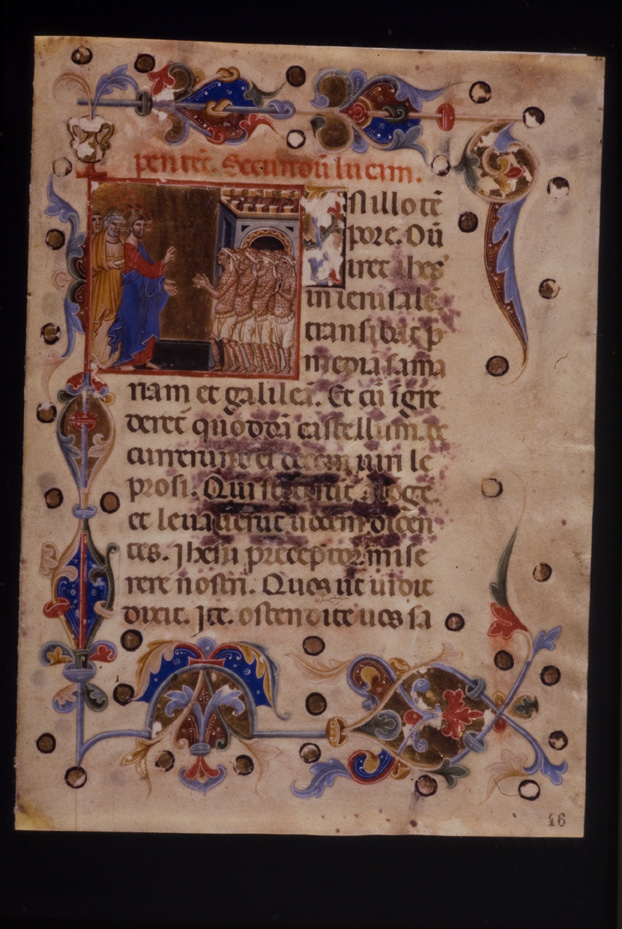 pentec. Secundū lucam.
In illo tē
pore. Dū
iret ihes
in ierusalē.
transibat p
mediā sama
riam et galileā. Et cū īgre
deret quoddā castellum. oc
currerunt ei decem uiri le
prosi. Qui steterūt a loge.
et leuauerūt uocem dicen
tes. Ihesu preceptor mise
rere nostri. Quos ut uidit
dixit. Ite. ostendite uos sa
46